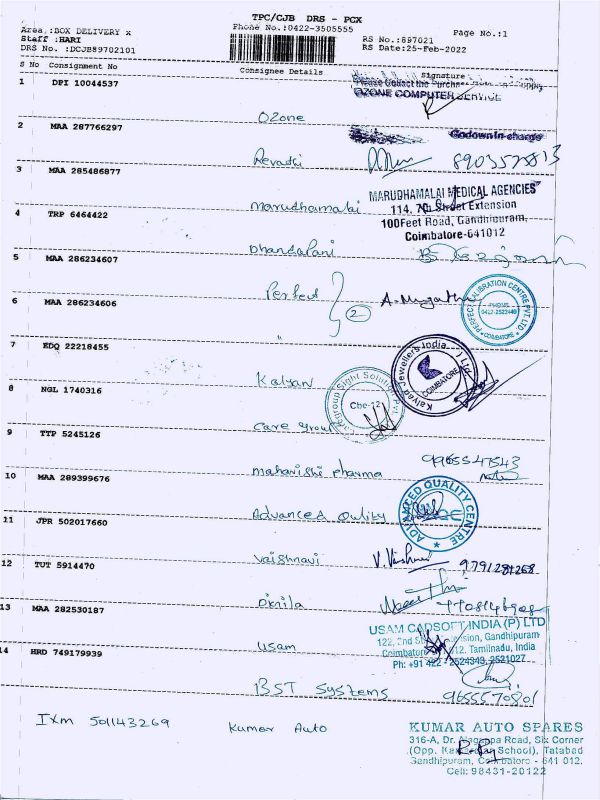 TPC/CJB DRS - PCX
Area :BOX DELIVERY x
Phone No.:0422-3505555
Page No.:1
Staff :HARI
RS No.:897021
DRS No. :DCJB89702101
RS Date:25-Feb-2022
S No Consignment No Consignee Details Signature
1 DPI 10044537
OZONE COMPUTER SERVICE
Ozone
2 MAA 287766297
Godown in-charge
Revathi 8903528813
3 MAA 285486877
MARUDHAMALAI MEDICAL AGENCIES
Marudhamalai
114, 7th Street Extension
4 TRP 6464422
100Feet Road, Gandhipuram,
Coimbatore-641012
Dhandapani
5 MAA 286234607
Perfect
PERFECT CALIBRATION CENTRE PVT LTD
PHONE
0422-2522449
COIMBATORE
6 MAA 286234606
2
"
7 EDQ 22218455
Kalyan Jewellers India Ltd
COIMBATORE
Kalyan
8 NGL 1740316
Cbe-12
Care group
9 TTP 5245126
Maharishi pharma 9965547543
10 MAA 289399676
ADVANCED QUALITY CENTRE
Advanced Qulity
11 JPR 502017660
Vaishnavi V.Vaishnavi 9791281268
12 TUT 5914470
13 MAA 282530187
USAM CADSOFT INDIA (P) LTD
122, 2nd Extension, Gandhipuram
Usam
Coimbatore 012. Tamilnadu, India
14 HRD 749179939
Ph: +91 422 - 2524343, 2521027
BST Systems 9655570801
Ixm 501143269 Kumar Auto
KUMAR AUTO SPARES
316-A, Dr. Alagappa Road, Six Corner
(Opp. School), Tatabad
Gandhipuram, Coimbatore - 641 012.
Cell: 98431-20122